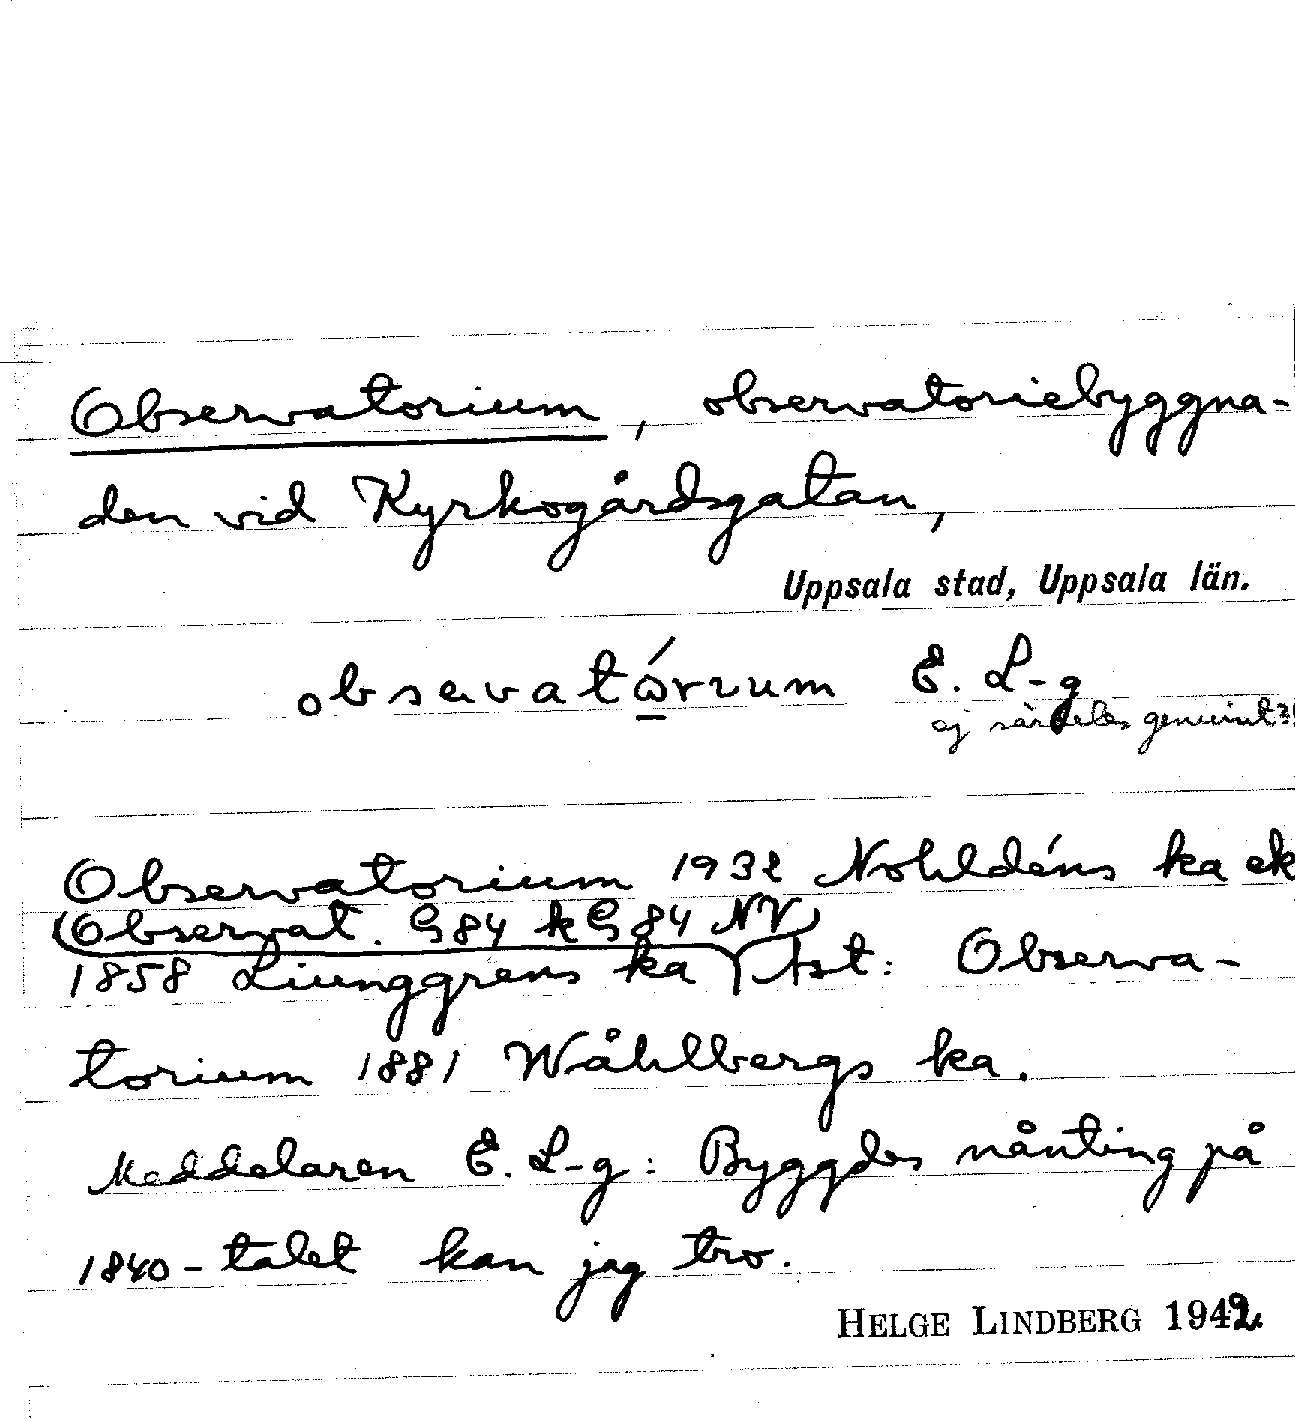 Observatorium, observatoriebyggna-
den vid Kyrkogårdsgatan,
Uppsala stad, Uppsala län.
E. L-g
ej särdeles genuint?!
Observatorium 1932 Nohldéns ka ek
(Observat. G84 kG84 NV)
1858 Ljunggrens ka Åst: Observa-
torium 1881 Wåhlbergs ka.
Meddelaren E. L-g: Byggdes nånting på
1840-talet kan jag tro.
HELGE LINDBERG 1942